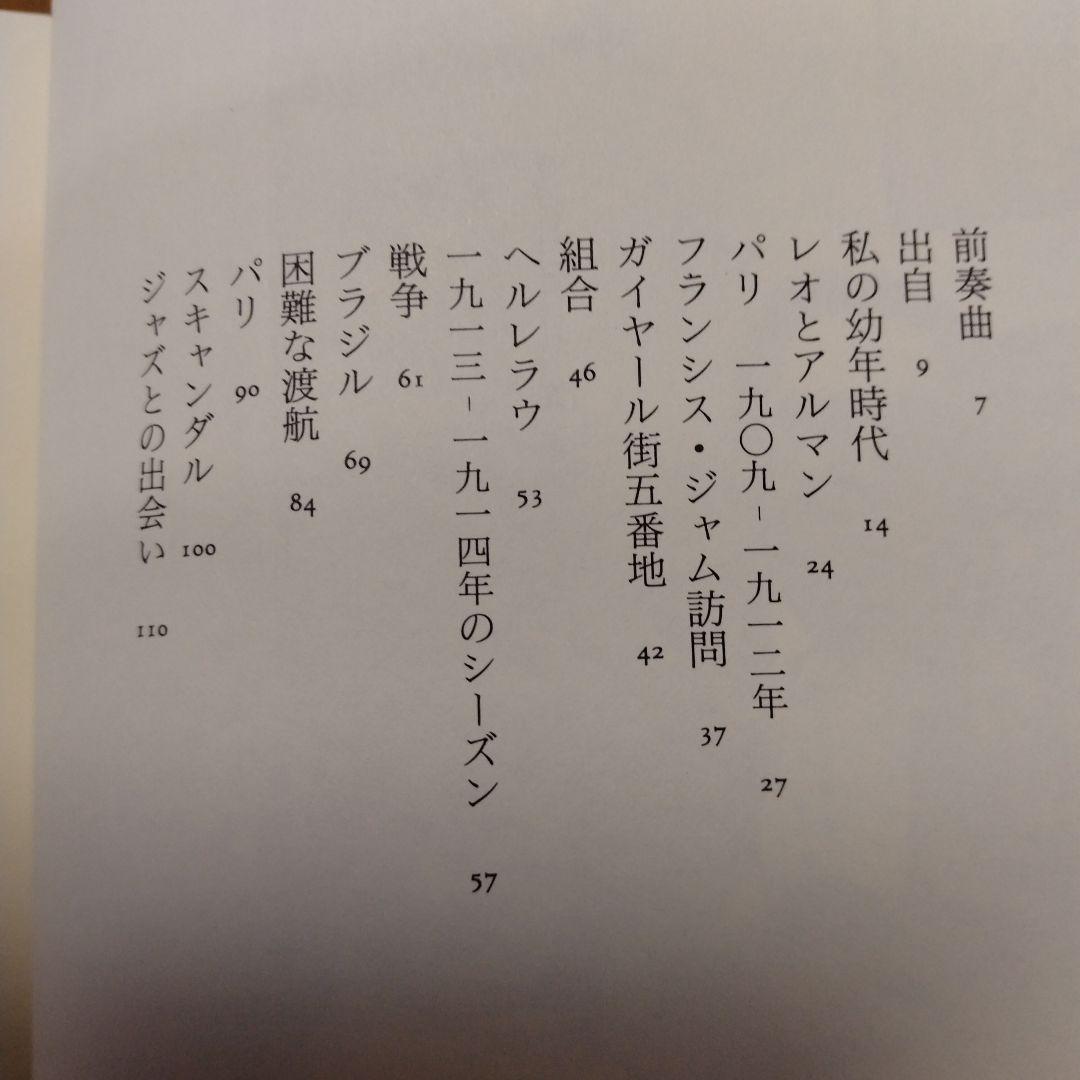 前奏曲 7
出自 9
私の幼年時代 14
レオとアルマン 24
パリ 一九〇九-一九一二年 27
フランシス・ジャム訪問 37
ガイヤール街五番地 42
組合 46
ヘルレラウ 53
一九一三-一九一四年のシーズン 57
戦争 61
ブラジル 69
困難な渡航 84
パリ 90
スキャンダル 100
ジャズとの出会い 110